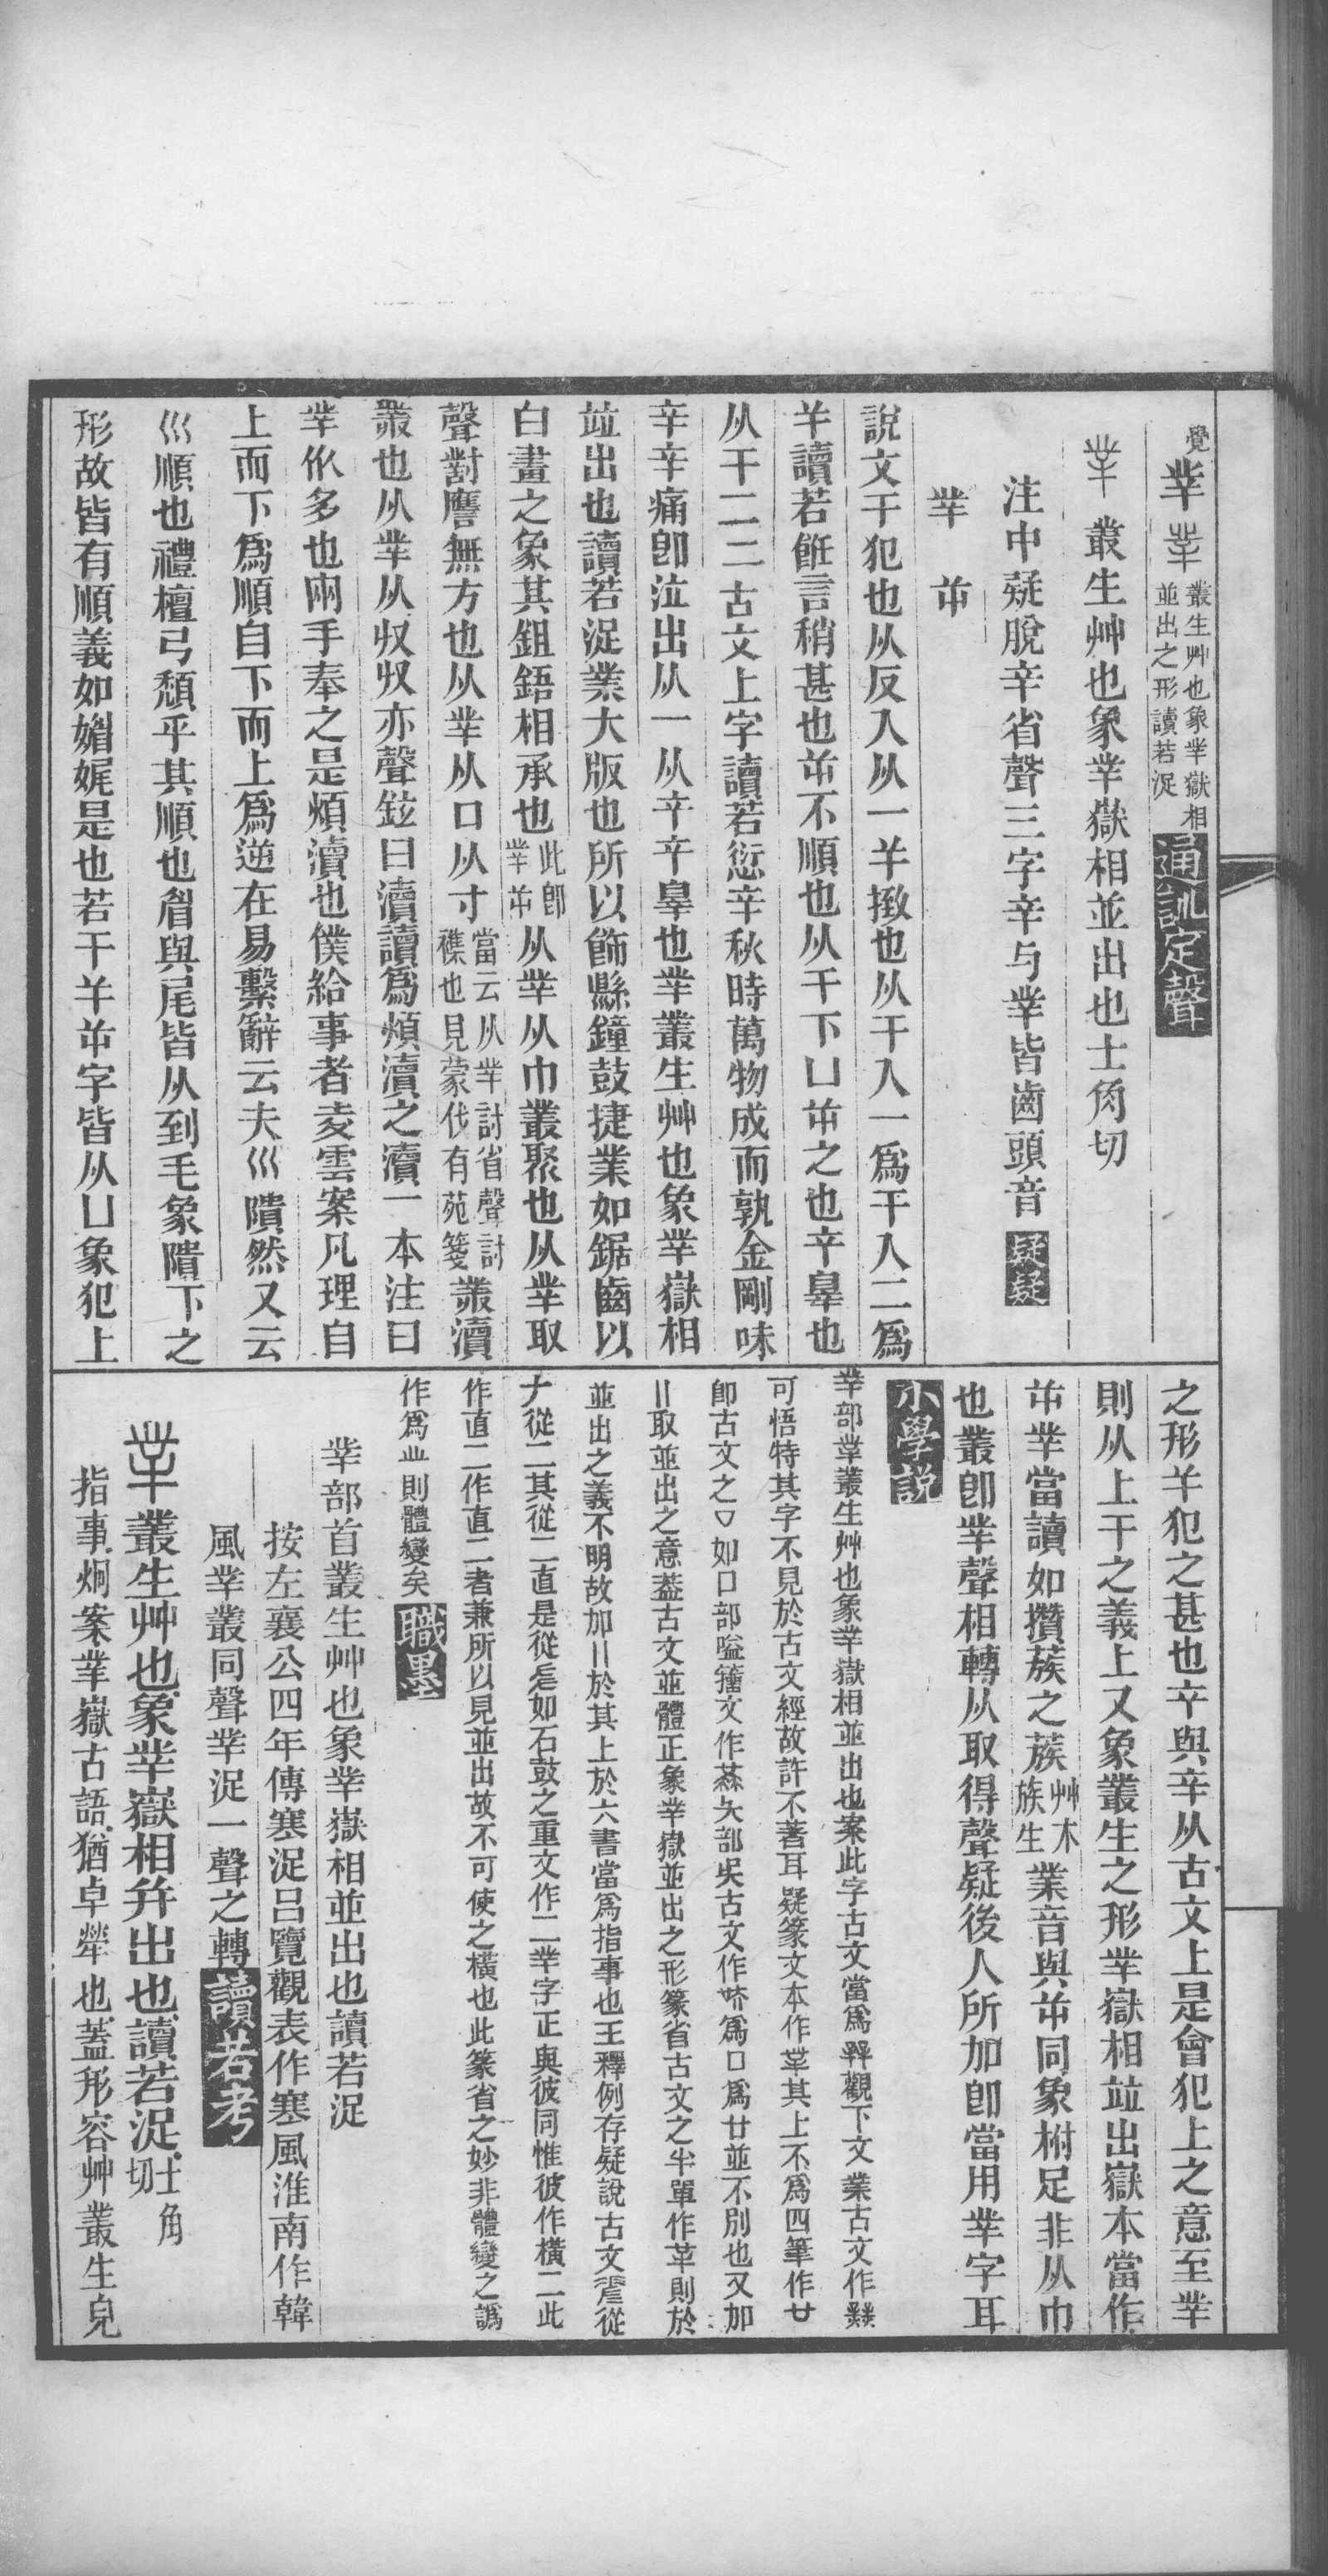 覺丵丵叢生艸也象丵嶽相並出之形讀若浞通訓定聲
丵叢生艸也象丵嶽相並出也士角切
注中疑脫䇂省聲三字䇂与丵皆齒頭音疑疑
丵 𢆉
說文干犯也从反入从一𢆉㨖也从干入一爲干入二爲
𢆉讀若飪言稍甚也屰不順也从干下凵屰之也䇂辠也
从干二二古文上字讀若愆辛秋時萬物成而孰金剛味
辛辛痛卽泣出从一从䇂䇂辠也丵叢生艸也象丵嶽相
竝出也讀若浞業大版也所以飾縣鐘鼓捷業如鋸齒以
白畫之象其鉏鋙相承也此卽丵屰从丵从巾叢聚也从丵取
聲對譍無方也从丵从口从寸當云从丵討省聲討襍也見蒙伐有苑箋菐瀆
菐也从丵从収収亦聲鉉曰瀆讀爲煩瀆之瀆一本注曰
丵㐺多也兩手奉之是煩瀆也僕給事者夌雲案凡理自
上而下爲順自下而上爲逆在易繫辭云夫巛隤然又云
巛順也禮檀弓頹乎其順也眉與尾皆从到毛象隤下之
形故皆有順義如媚娓是也若干𢆉屰字皆从凵象犯上
之形𢆉犯之甚也䇂與辛从古文上是會犯上之意至丵
則从上干之義上又象叢生之形丵嶽相竝出嶽本當作
屰丵當讀如攢蔟之蔟艸木族生業音與屰同象柎足非从巾
也叢卽丵聲相轉从取得聲疑後人所加卽當用丵字耳
小學説
丵部丵叢生艸也象丵嶽相並出也案此字古文當爲觀下文業古文作
可悟特其字不見於古文經故許不著耳疑篆文本作其上不爲四筆作廿
卽古文之口如口部嗌籒文作矢部吳古文作爲口爲廿並不別也又加
〢取並出之意葢古文並體正象丵嶽並出之形篆省古文之半單作則於
並出之義不明故加〢於其上於六書當爲指事也王釋例存疑說古文從
從二其從二直是從如石鼓之重文作二丵字正與彼同惟彼作橫二此
作直二作直二者兼所以見並出故不可使之橫也此篆省之妙非體變之譌
作爲則體變矣職墨
丵部首叢生艸也象丵嶽相並出也讀若浞
按左襄公四年傳寒浞呂覽觀表作寒風淮南作韓
風丵叢同聲丵浞一聲之轉讀若考
丵叢生艸也象丵嶽相幷出也讀若浞士角切
指事炯案丵嶽古語猶卓犖也蓋形容艸叢生皃